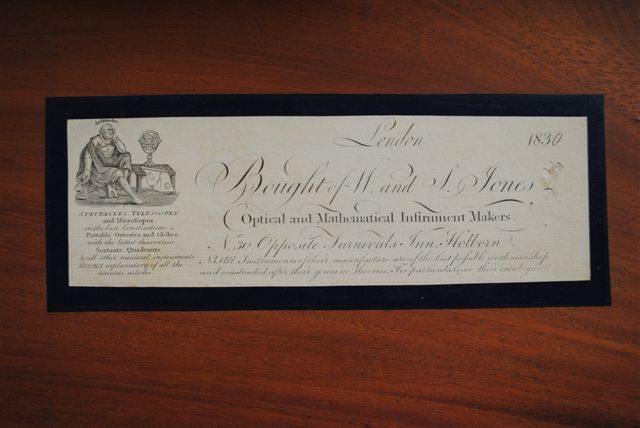 Archimedes
SPECTACLES, TELESCOPES
and Microscopes
on the best Constructions
Portable Orreries and Globes
with the latest discoveries
Sextants, Quadrants
& all other nautical instruments
BOOKS explanatory of all the
various articles
London 1830
Bought of W. and S. Jones
Optical and Mathematical Instrument Makers.
No. 30 Opposite Furnivals Inn, Holborn.
NB. All Instruments of their manufacture are of the best possible workmanship
and constructed after their genuine theories. For particulars, see their catalogue.